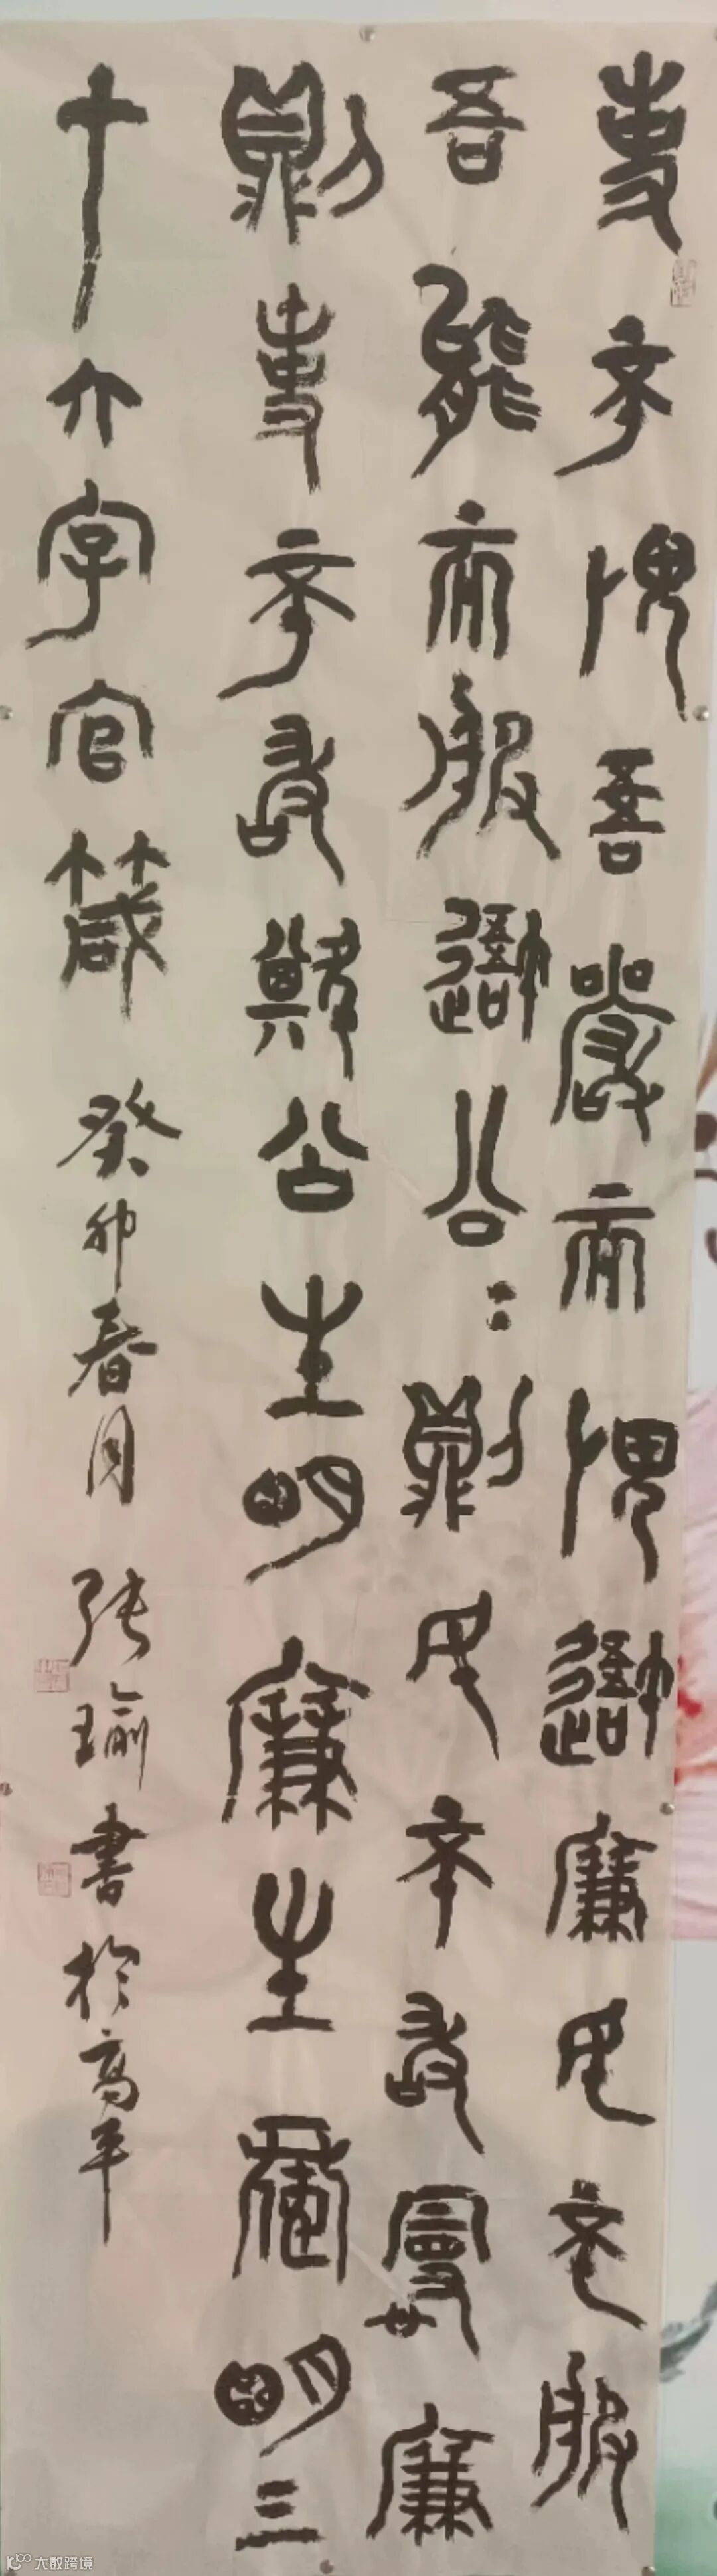 吏不畏吾嚴而畏吾廉民不服
吾能而服吾公〻則民不敢慢廉
則吏不敢欺公生明廉生威明三
十六字官箴 癸卯春月 張瑜書於高平
大数跨境